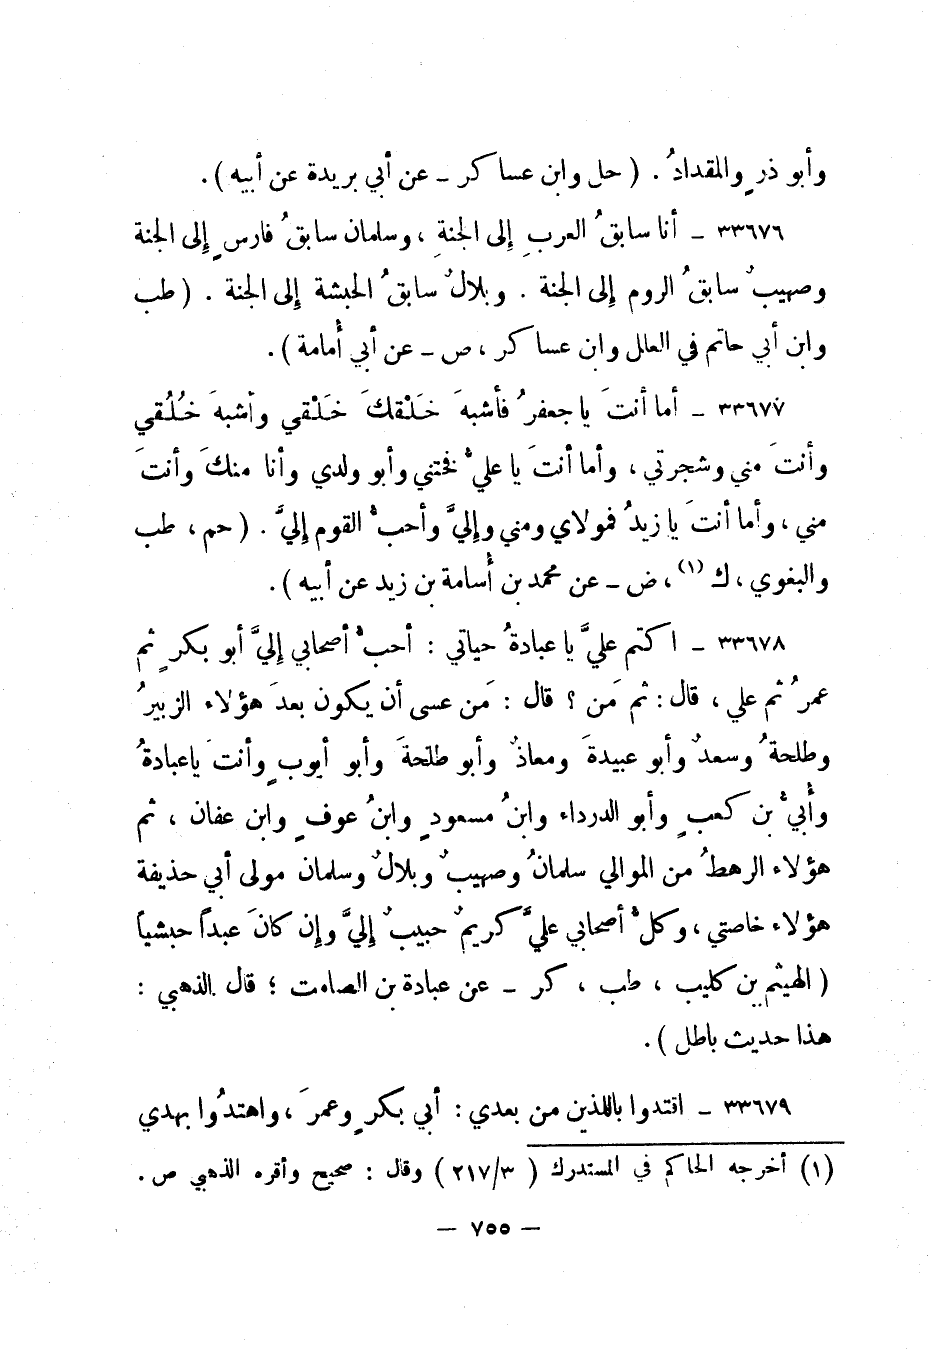 وأبو ذرٍ والمقدادُ . ( حل وابن عساكر ـ عن أبي بريدة عن أبيه ) .
٣٣٦٧٦ ـ أنا سابقُ العربِ إلى الجنةِ ، وسلمان سابقُ فارسٍ إلى الجنة
وصهيبٌ سابقُ الروم إلى الجنة . وبلالٌ سابقُ الحبشة إلى الجنة . ( طب
وابن أبي حاتم في العلل وابن عساكر ، ص ـ عن أبي أُمامة ) .
٣٣٦٧٧ ـ أما أنتَ يا جعفرُ فأشبهَ خَلْقكَ خَلْقي وأشبهَ خُلُقي
وأنتَ مني وشجرتي ، وأما أنتَ يا عليُّ فختني وأبو ولدي وأنا منكَ وأنتَ
مني ، وأما أنتَ يا زيدُ فمولاي ومني وإليَّ وأحبُّ القوم إليَّ . ( حم ، طب
والبغوي ، ك (١) ، ض ـ عن محمد بن أُسامة بن زيد عن أبيه ) .
٣٣٦٧٨ ـ اكتم عليَّ يا عبادةُ حياتي : أحبُّ أصحابي إليَّ أبو بكرٍ ثم
عمرُ ثم علي ، قال : ثم مَن ؟ قال : مَن عسى أن يكون بعدَ هؤلاء الزبيرُ
وطلحةُ وسعدٌ وأبو عبيدةَ ومعاذٌ وأبو طلحةَ وأبو أيوبٍ وأنتَ ياعبادةُ
وأُبيُّ بن كعبٍ وأبو الدرداء وابنُ مسعودٍ وابنُ عوفٍ وابن عفان ، ثم
هؤلاء الرهطُ من الموالي سلمانُ وصهيبٌ وبلالٌ وسلمان مولى أبي حذيفة
هؤلاء خاصتي ، وكلُّ أصحابي عليَّ كريمٌ حبيبٌ إليَّ وإن كانَ عبداً حبشياً
( الهيثم بن كليب ، طب ، كر ـ عن عبادة بن الصامت ؛ قال الذهبي :
هذا حديث باطل ) .
٣٣٦٧٩ ـ اقتدوا باللذين من بعدي : أبي بكرٍ وعمرَ ، واهتدُوا بهدي
(١) أخرجه الحاكم في المستدرك ( ٣/٢١٧ ) وقال : صحيح وأقره الذهبي ص .
— ٧٥٥ —